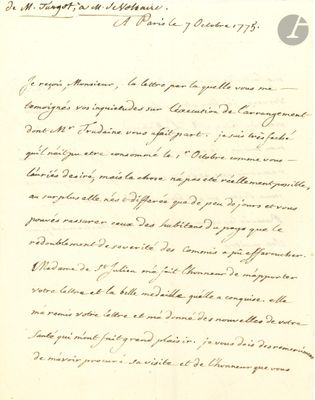 de M. Turgot, à M. de Voltaire
A Paris le 7 Octobre 1775.
Je reçois, Monsieur, la lettre par la quelle vous me
temoignés vos inquietudes sur l'execution de l'arrangement
dont Mr. Trudaine vous a fait part. je suis très faché
qu'il n'ait pu etre consommé le 1er Octobre comme vous
l'auriés desiré, mais la chose n'a pas été réellement possible,
au surplus elle n'est differée que de peu de jours et vous
pouvés rassurer ceux des habitans du pays que le
redoublement de severité des Commis a pû effaroucher.
Madame de St. Julien m'a fait l'honneur de m'apporter
votre lettre et la belle medaille qu'elle a conquise. elle
m'a remis votre lettre et m'a donné des nouvelles de votre
santé qui m'ont fait grand plaisir. je vous dois des remerciemens
de m'avoir procuré sa visite et de l'honneur que vous